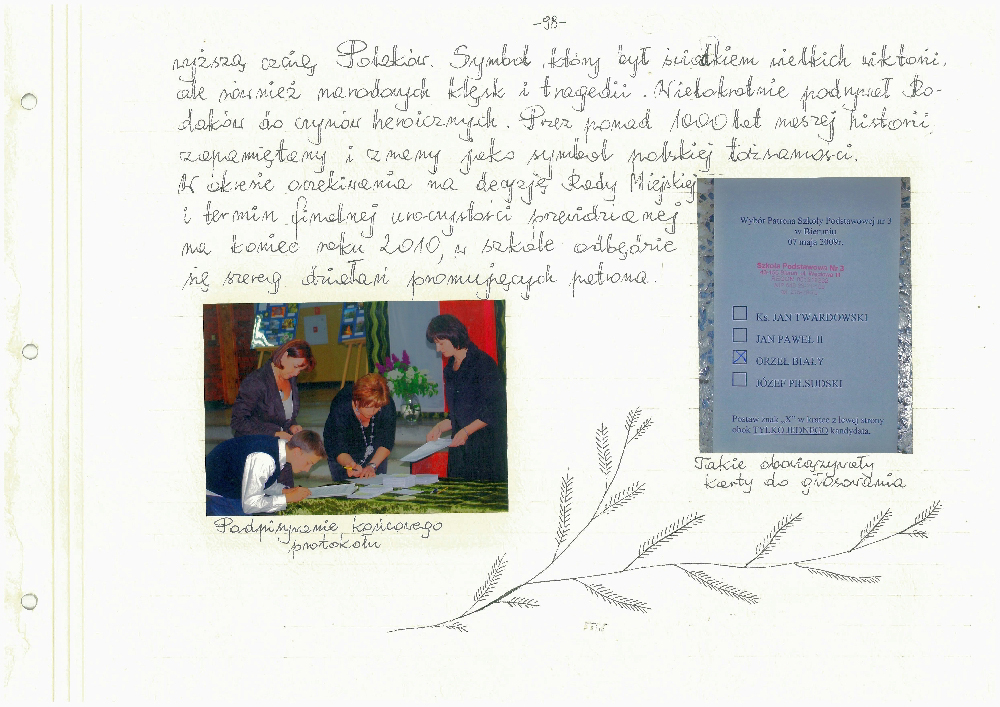 -98-
wyższą czcią Polaków. Symbol, który był świadkiem wielkich wiktorii,
ale również narodowych klęsk i tragedii. Niejednokrotnie podrywał Ro-
daków do czynów heroicznych. Przez ponad 1000 lat naszej historii,
zapamiętany i znany jako symbol polskiej tożsamości.
W okresie oczekiwania na decyzję Rady Miejskiej
i termin finalnej uroczystości przewidzianej
na koniec roku 2010, w szkole odbędzie
się szereg działań promujących patrona.
Wybór Patrona Szkoły Podstawowej nr 3
w Bieruniu
07 maja 2009r.
Szkoła Podstawowa Nr 3
Ks. JAN TWARDOWSKI
JAN PAWEŁ II
ORZEŁ BIAŁY
JÓZEF PIŁSUDSKI
Postaw znak „X" w kratce z lewej strony
obok TYLKO JEDNEGO kandydata.
Takie obowiązywały
karty do głosowania
Podpisywanie końcowego
protokołu